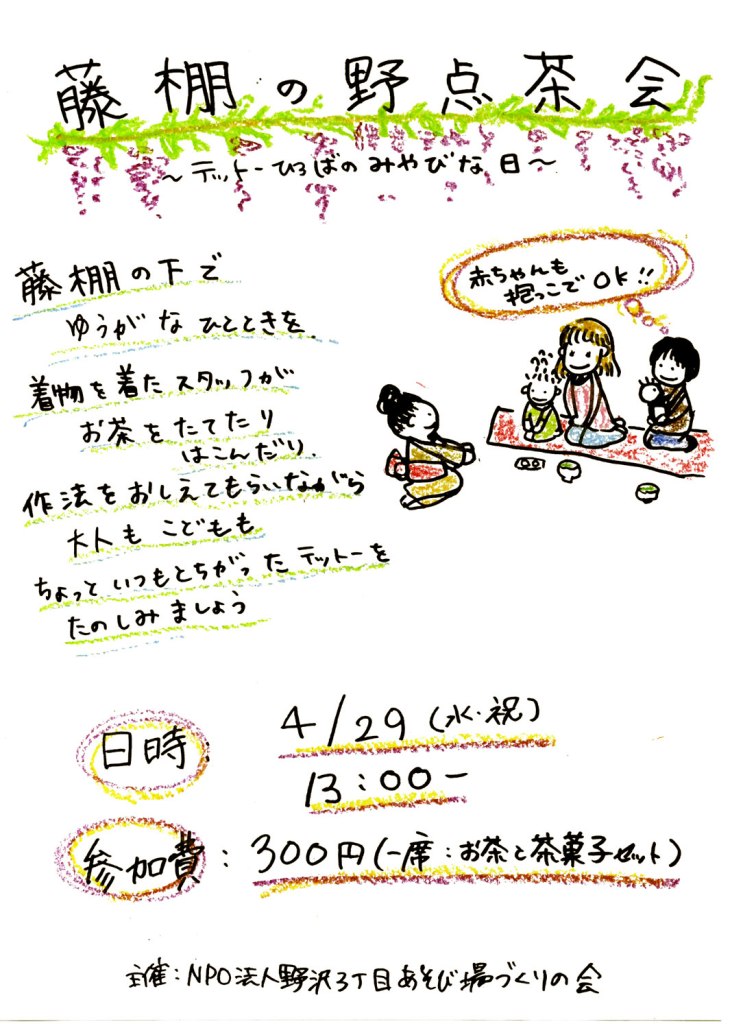 藤棚の野点茶会
～テットーひろばのみやびな日～
藤棚の下で
ゆうがなひとときを
赤ちゃんも
抱っこでOK!!
着物を着たスタッフが
お茶をたてたり
はこんだり
作法をおしえてもらいながら
大人もこどもも
ちょっといつもとちがったテットーを
たのしみましょう
日時
4/29(水・祝)
13:00-
参加費:300円(一席:お茶と茶菓子セット)
主催:NPO法人野沢3丁目あそび場づくりの会